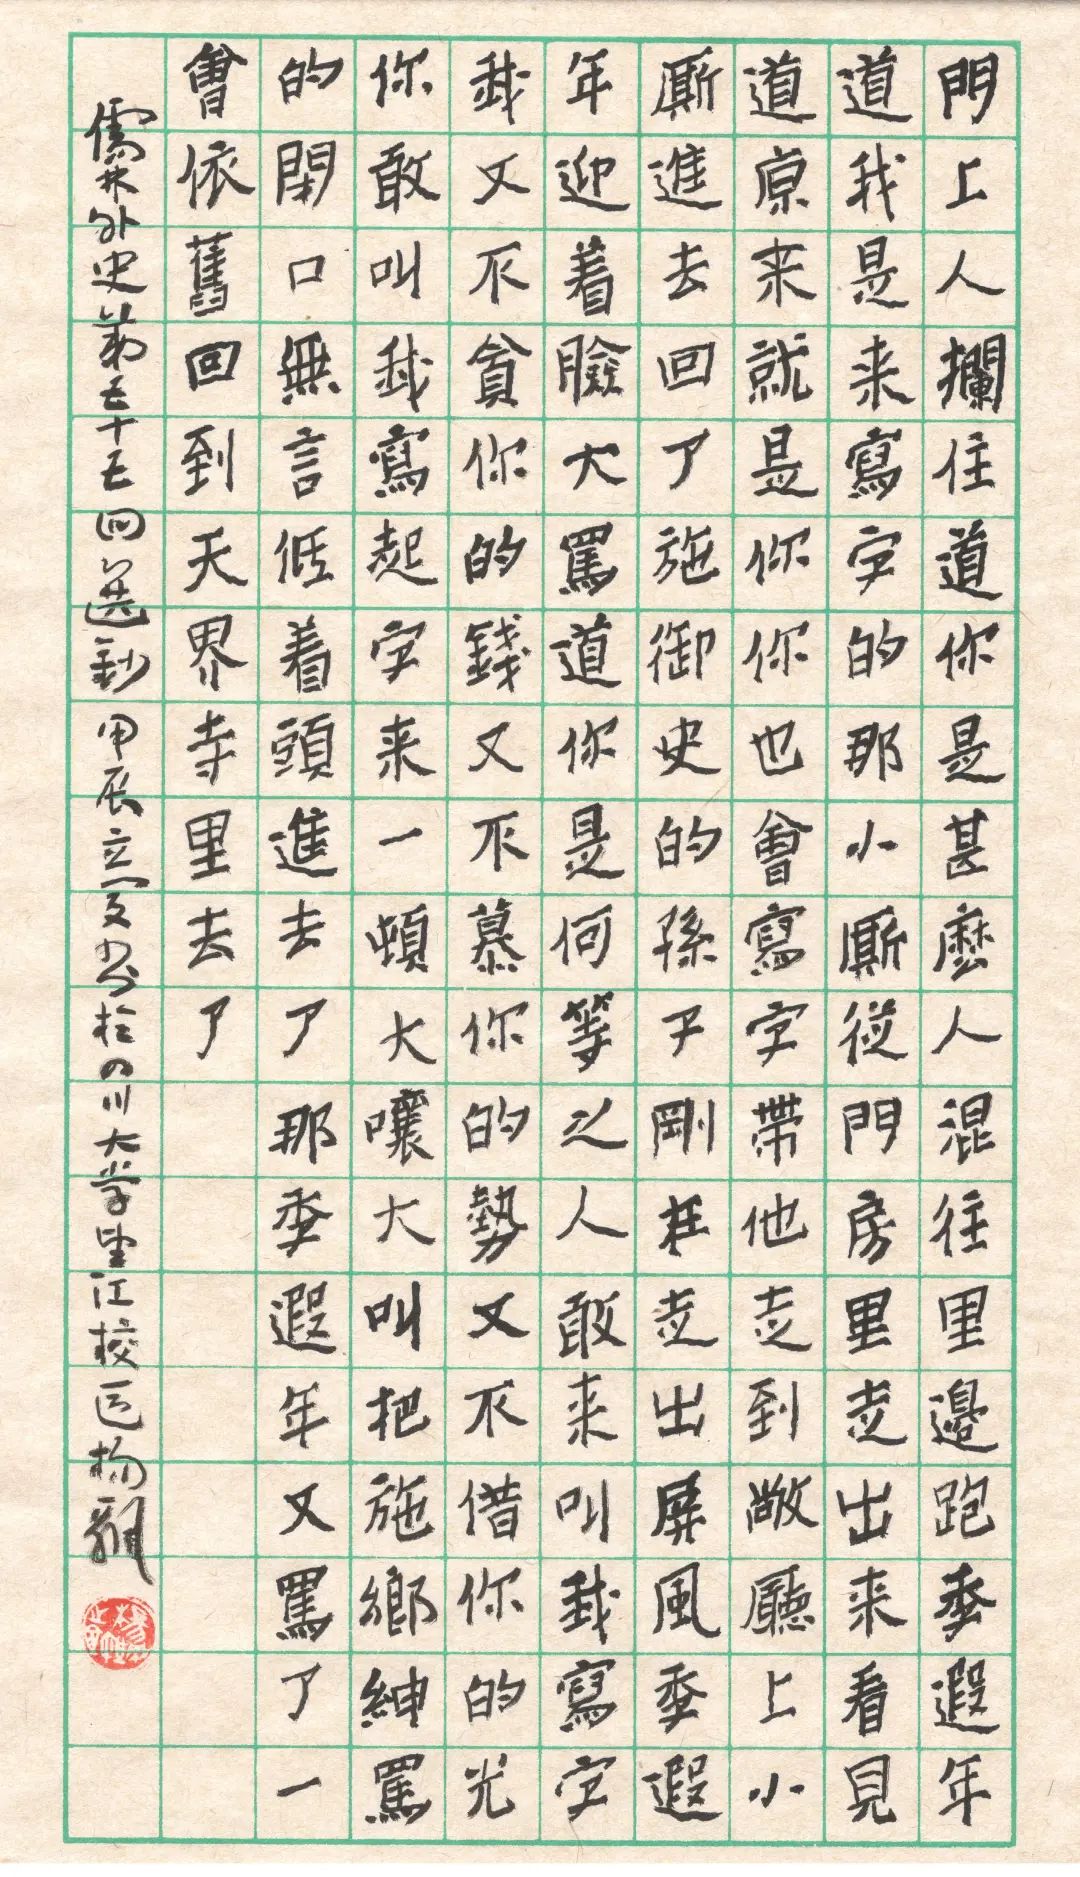 門上人攔住道你是甚麽人混往里邊跑季遐年
道我是来寫字的那小厮從門房里走出来看見
道原来就是你你也會寫字帶他走到敞廳上小
厮進去回了施御史的孫子剛走出屏風季遐
年迎着臉大罵道你是何等之人敢来叫我寫字
我又不貪你的錢又不慕你的勢又不借你的光
你敢叫我寫起字来一頓大嚷大叫把施鄉紳罵
的閉口無言低着頭進去了那季遐年又罵了一
會依舊回到天界寺里去了
儒林外史第五十五回選鈔 甲辰立夏書於四川大学望江校區楊